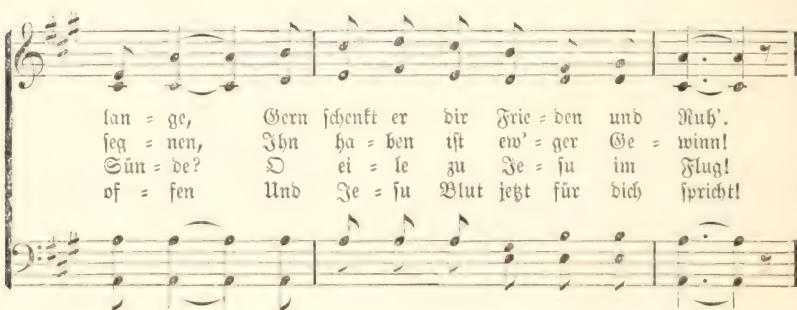 lan = ge, Gern schenkt er dir Frie = den und Ruh'.
seg = nen, Ihn ha = ben ist ew' = ger Ge = winn!
Sün = de? O ei = le zu Je = su im Flug!
of = fen Und Je = su Blut jetzt für dich spricht!